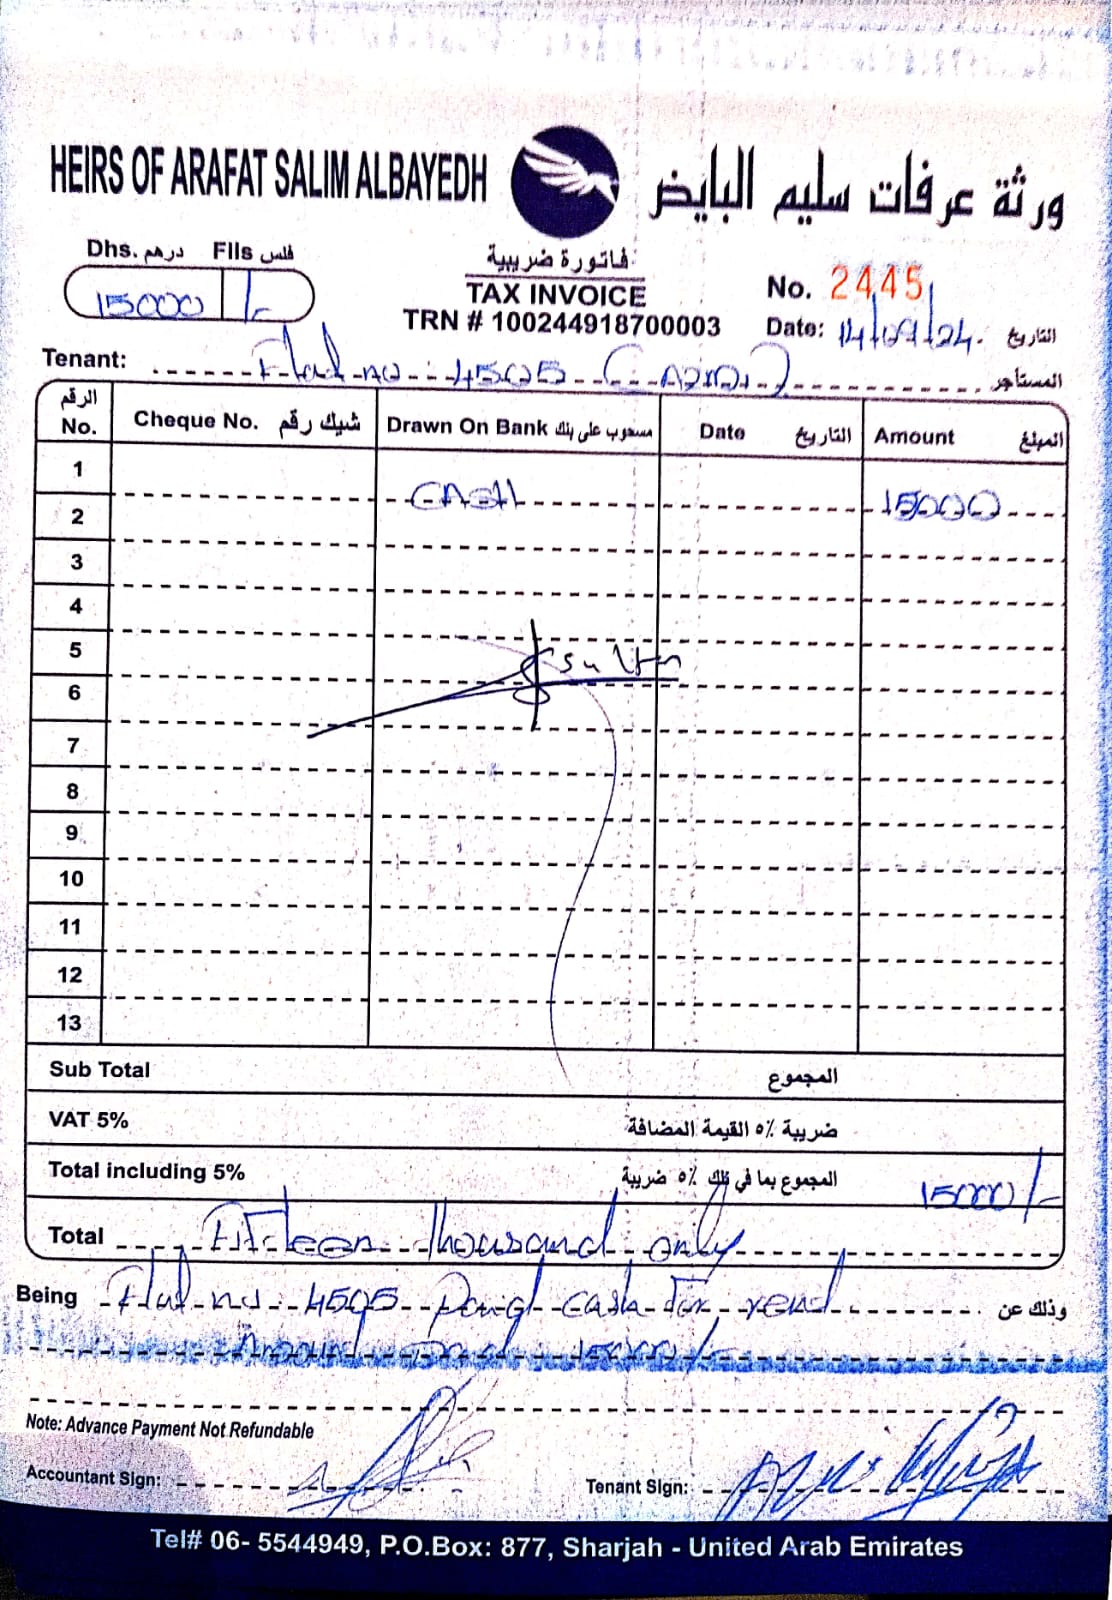 HEIRS OF ARAFAT SALIM ALBAYEDH ورثة عرفات سليم البايض
Dhs. درهم Fils فلس
15000 /-
فاتورة ضريبية
TAX INVOICE
TRN # 100244918700003
No. 2445
Date: 14/09/24 التاريخ
Tenant: Flat no : 4505 المستأجر
الرقم No. Cheque No. شيك رقم Drawn On Bank مسحوب على بنك Date التاريخ Amount المبلغ
1
CASH 15000
2
3
4
5
6
7
8
9
10
11
12
13
Sub Total المجموع
VAT 5% ضريبة ٥٪ القيمة المضافة
Total including 5% المجموع بما في ذلك ٥٪ ضريبة 15000/-
Total Fifteen thousand only
Being Flat no : 4505 cash for وذلك عن
15000/-
Note: Advance Payment Not Refundable
Accountant Sign:
Tenant Sign:
Tel# 06- 5544949, P.O.Box: 877, Sharjah - United Arab Emirates